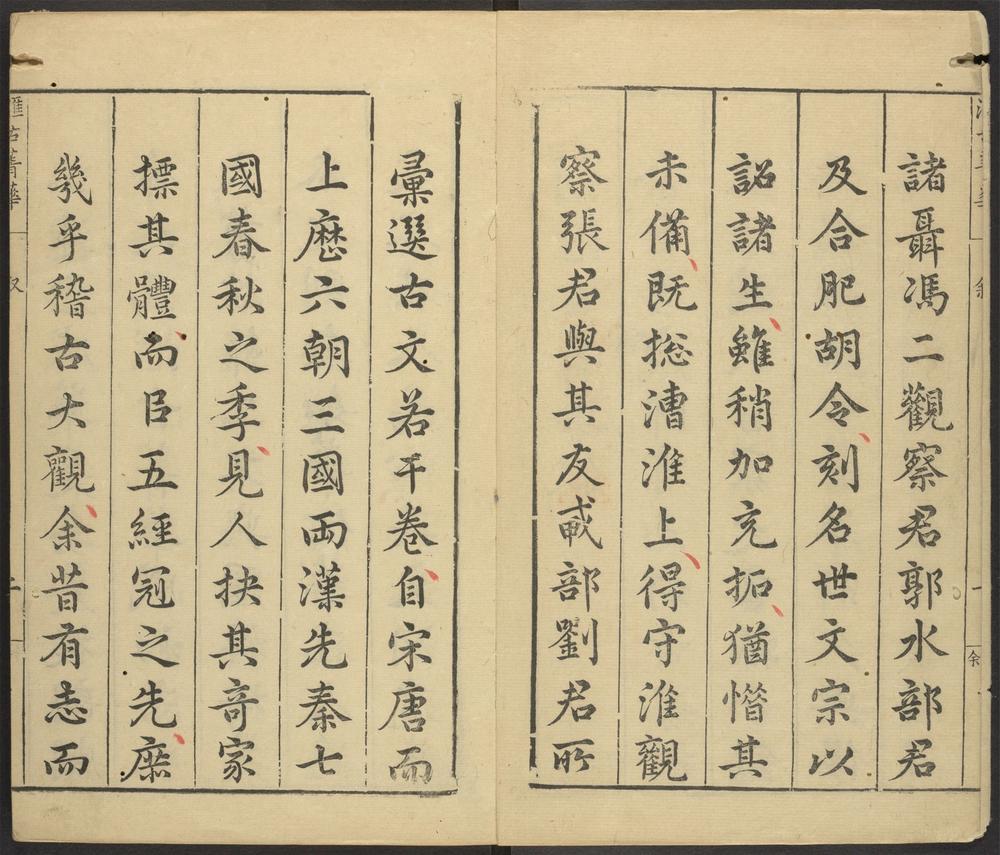 諸聶馮二觀察君郭水部君
及合肥胡令刻名世文宗以
詔諸生雖稍加充拓猶憯其
未備既総漕淮上得守淮觀
察張君與其友戚部劉君所
彚選古文若干卷自宋唐而
上歷六朝三國兩漢先秦七
國春秋之季見人抉其奇家
摽其體而臣五經冠之先庶
幾乎稽古大觀余昔有志而
叙
一
余
匯古菁華
叙
二